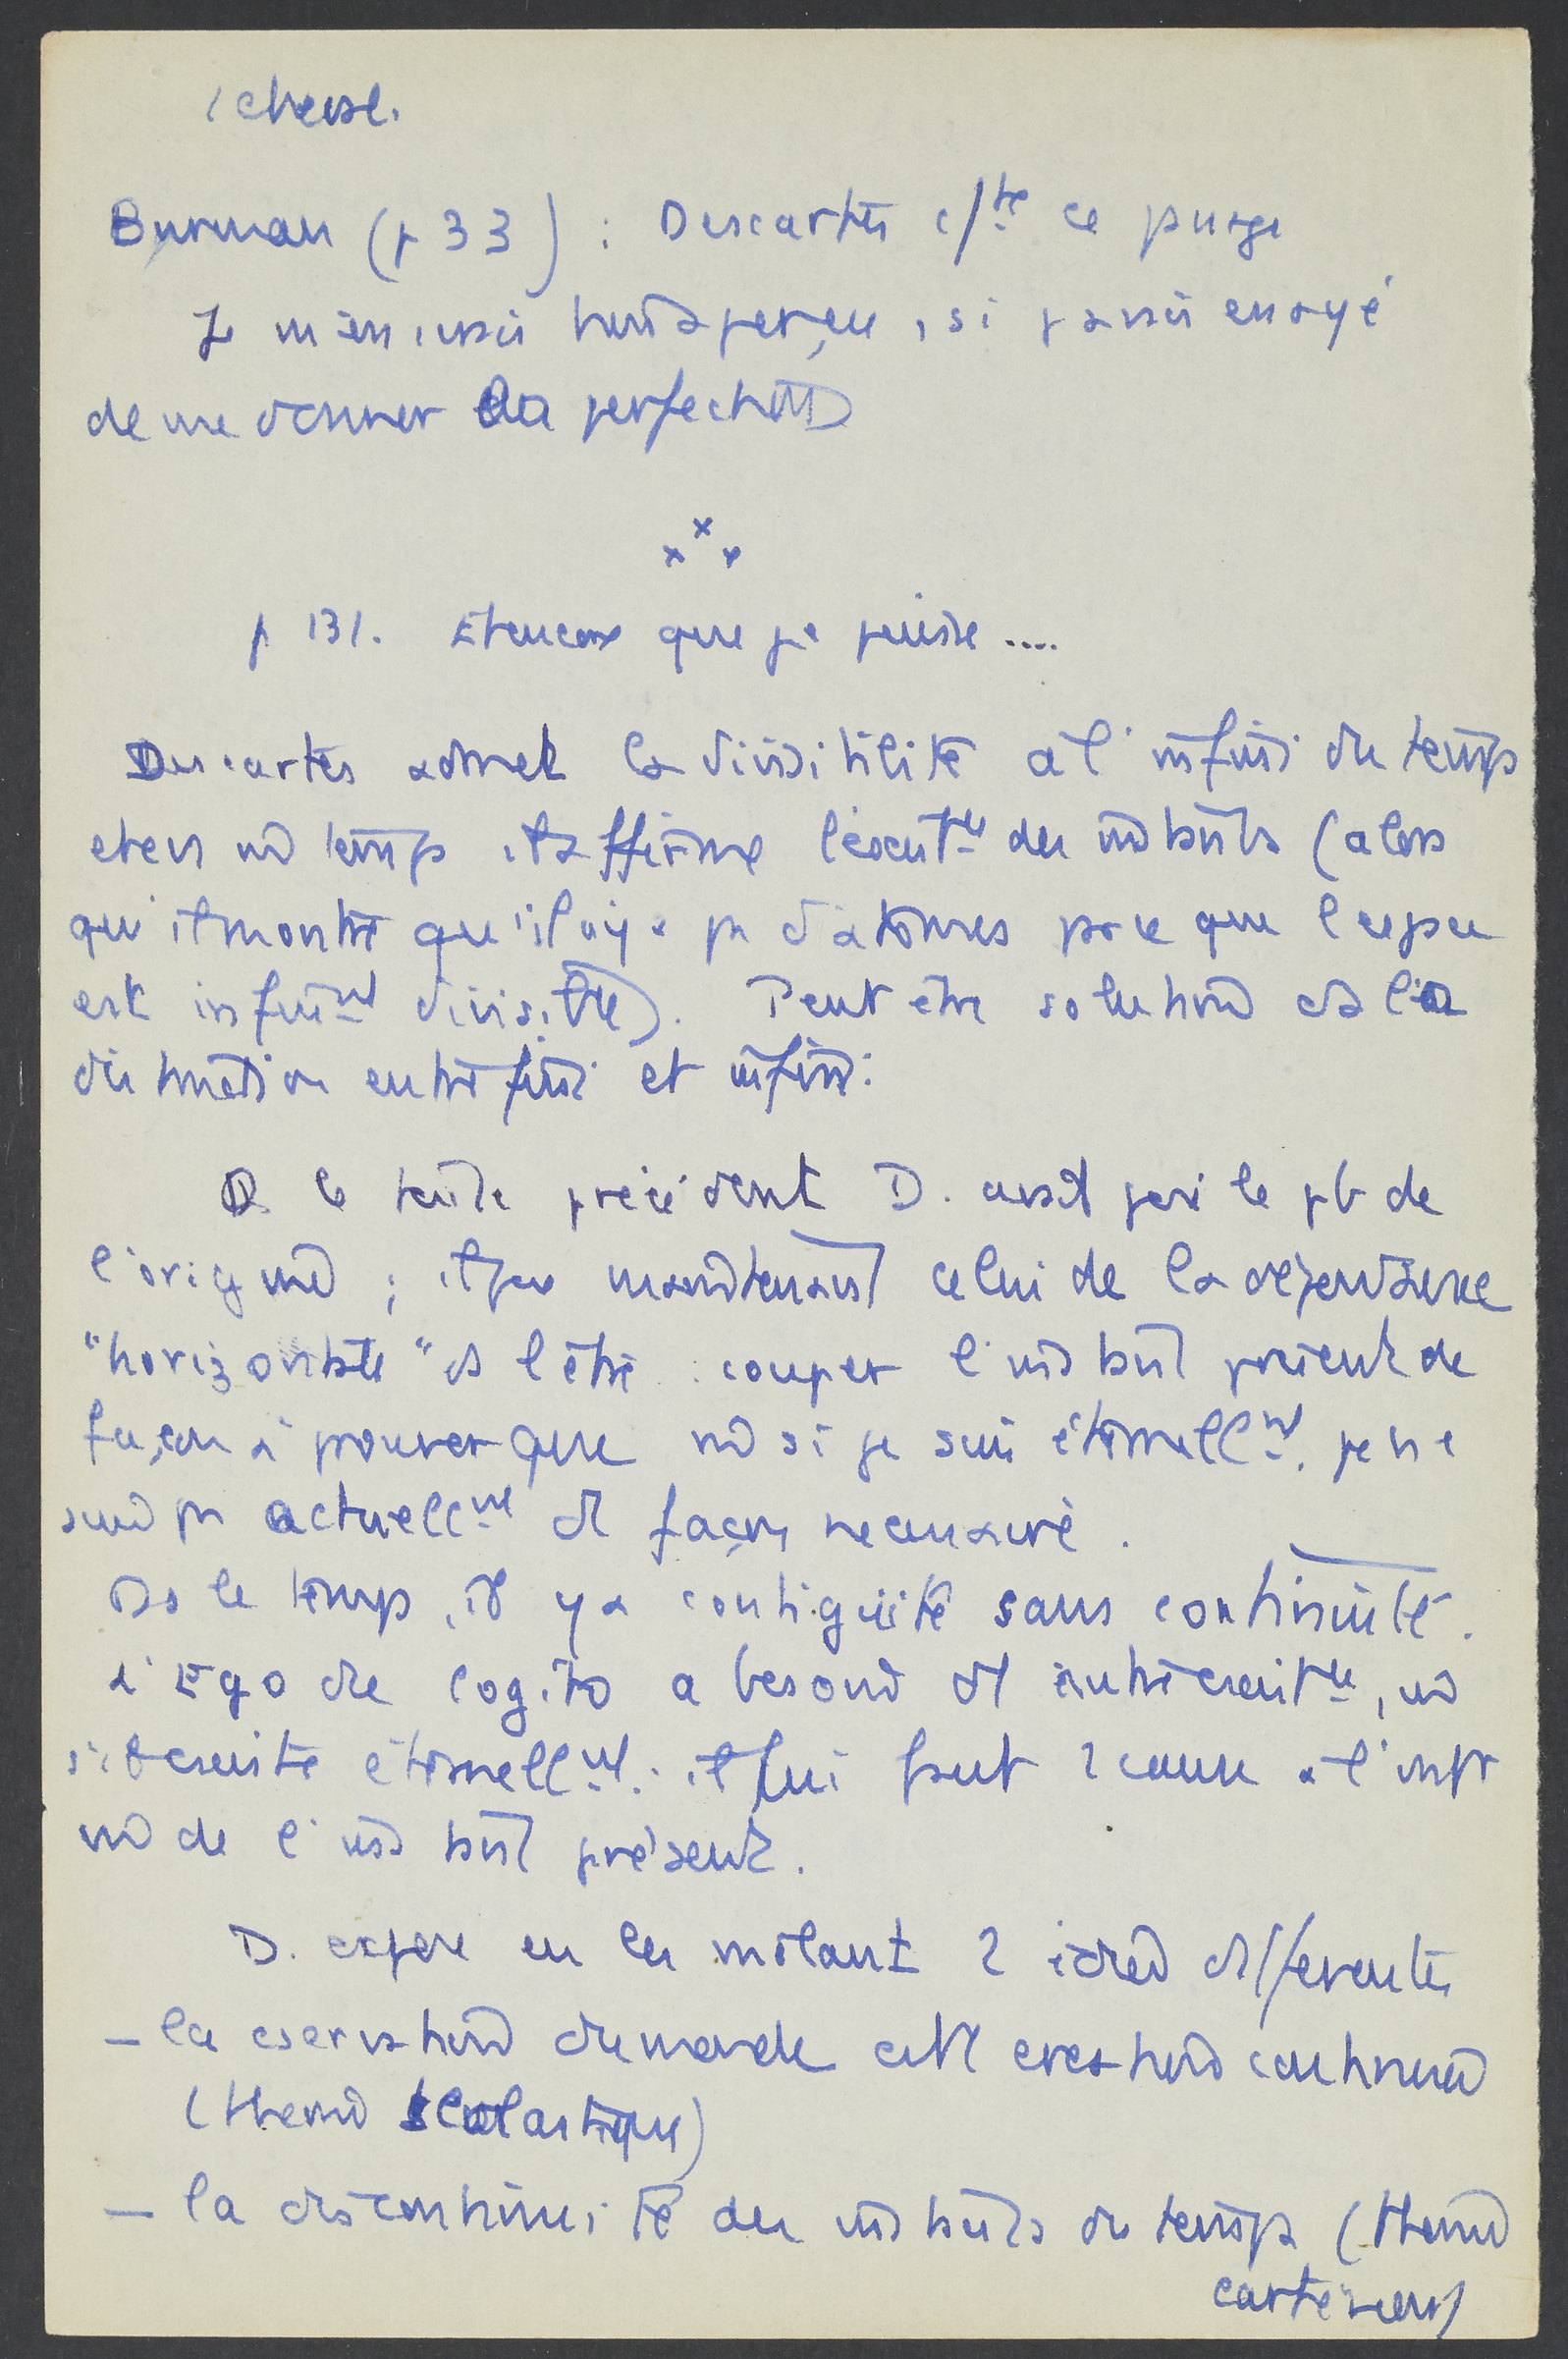 1 chose.
Burman (p 33) : Descartes c/te ce passage
Je m'en serais aperçu, si j'avais essayé
de me donner la perfection
x x x
p 131. Et encore que je puisse ....
Descartes admet la divisibilité à l'infini du temps
et en m temps il affirme l'existce des instants (alors
qu'il montre qu'il n'y a pas d'atomes parce que l'espace
est infinimt divisible). Peut être solution ds la
distinction entre fini et infini :
Ds le texte précédent D. avait posé le pb de
l'origine ; il pose maintenant celui de la dépendance
"horizontale" ds l'être : couper l'instant présent de
façon à prouver que m si je suis éternellmt, je ne
suis pas actuellmt de façon nécessaire.
Ds le temps, il y a contiguïté sans continuité.
L'Ego du Cogito a besoin d'être entre existce, m
s'il existe éternellmt : il lui faut 1 cause à l'intr
m de l'instant présent.
D. expose en les mêlant 2 idées différentes
- la cservation du monde est création continuée
(thème scolastique)
- la discontinuité des instants du temps (thème
cartésien)